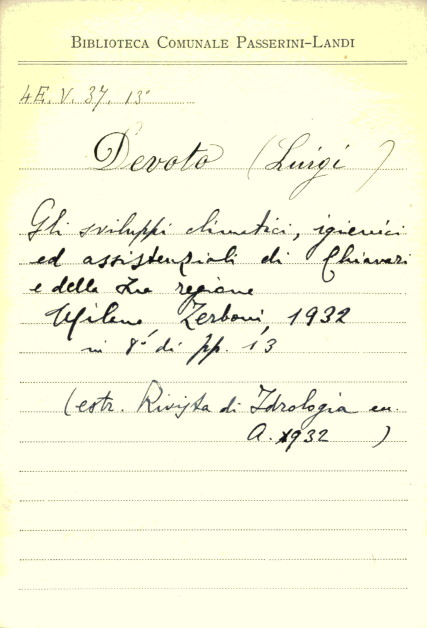 BIBLIOTECA COMUNALE PASSERINI-LANDI
4E. V. 37. 13°
Devoto (Luigi)
Gli sviluppi climatici, igienici
ed assistenziali di Chiavari
e della sua regione
Milano, Zerboni, 1932
in 8° di pp. 13
(estr. Rivista di Idrologia
A. 1932 )